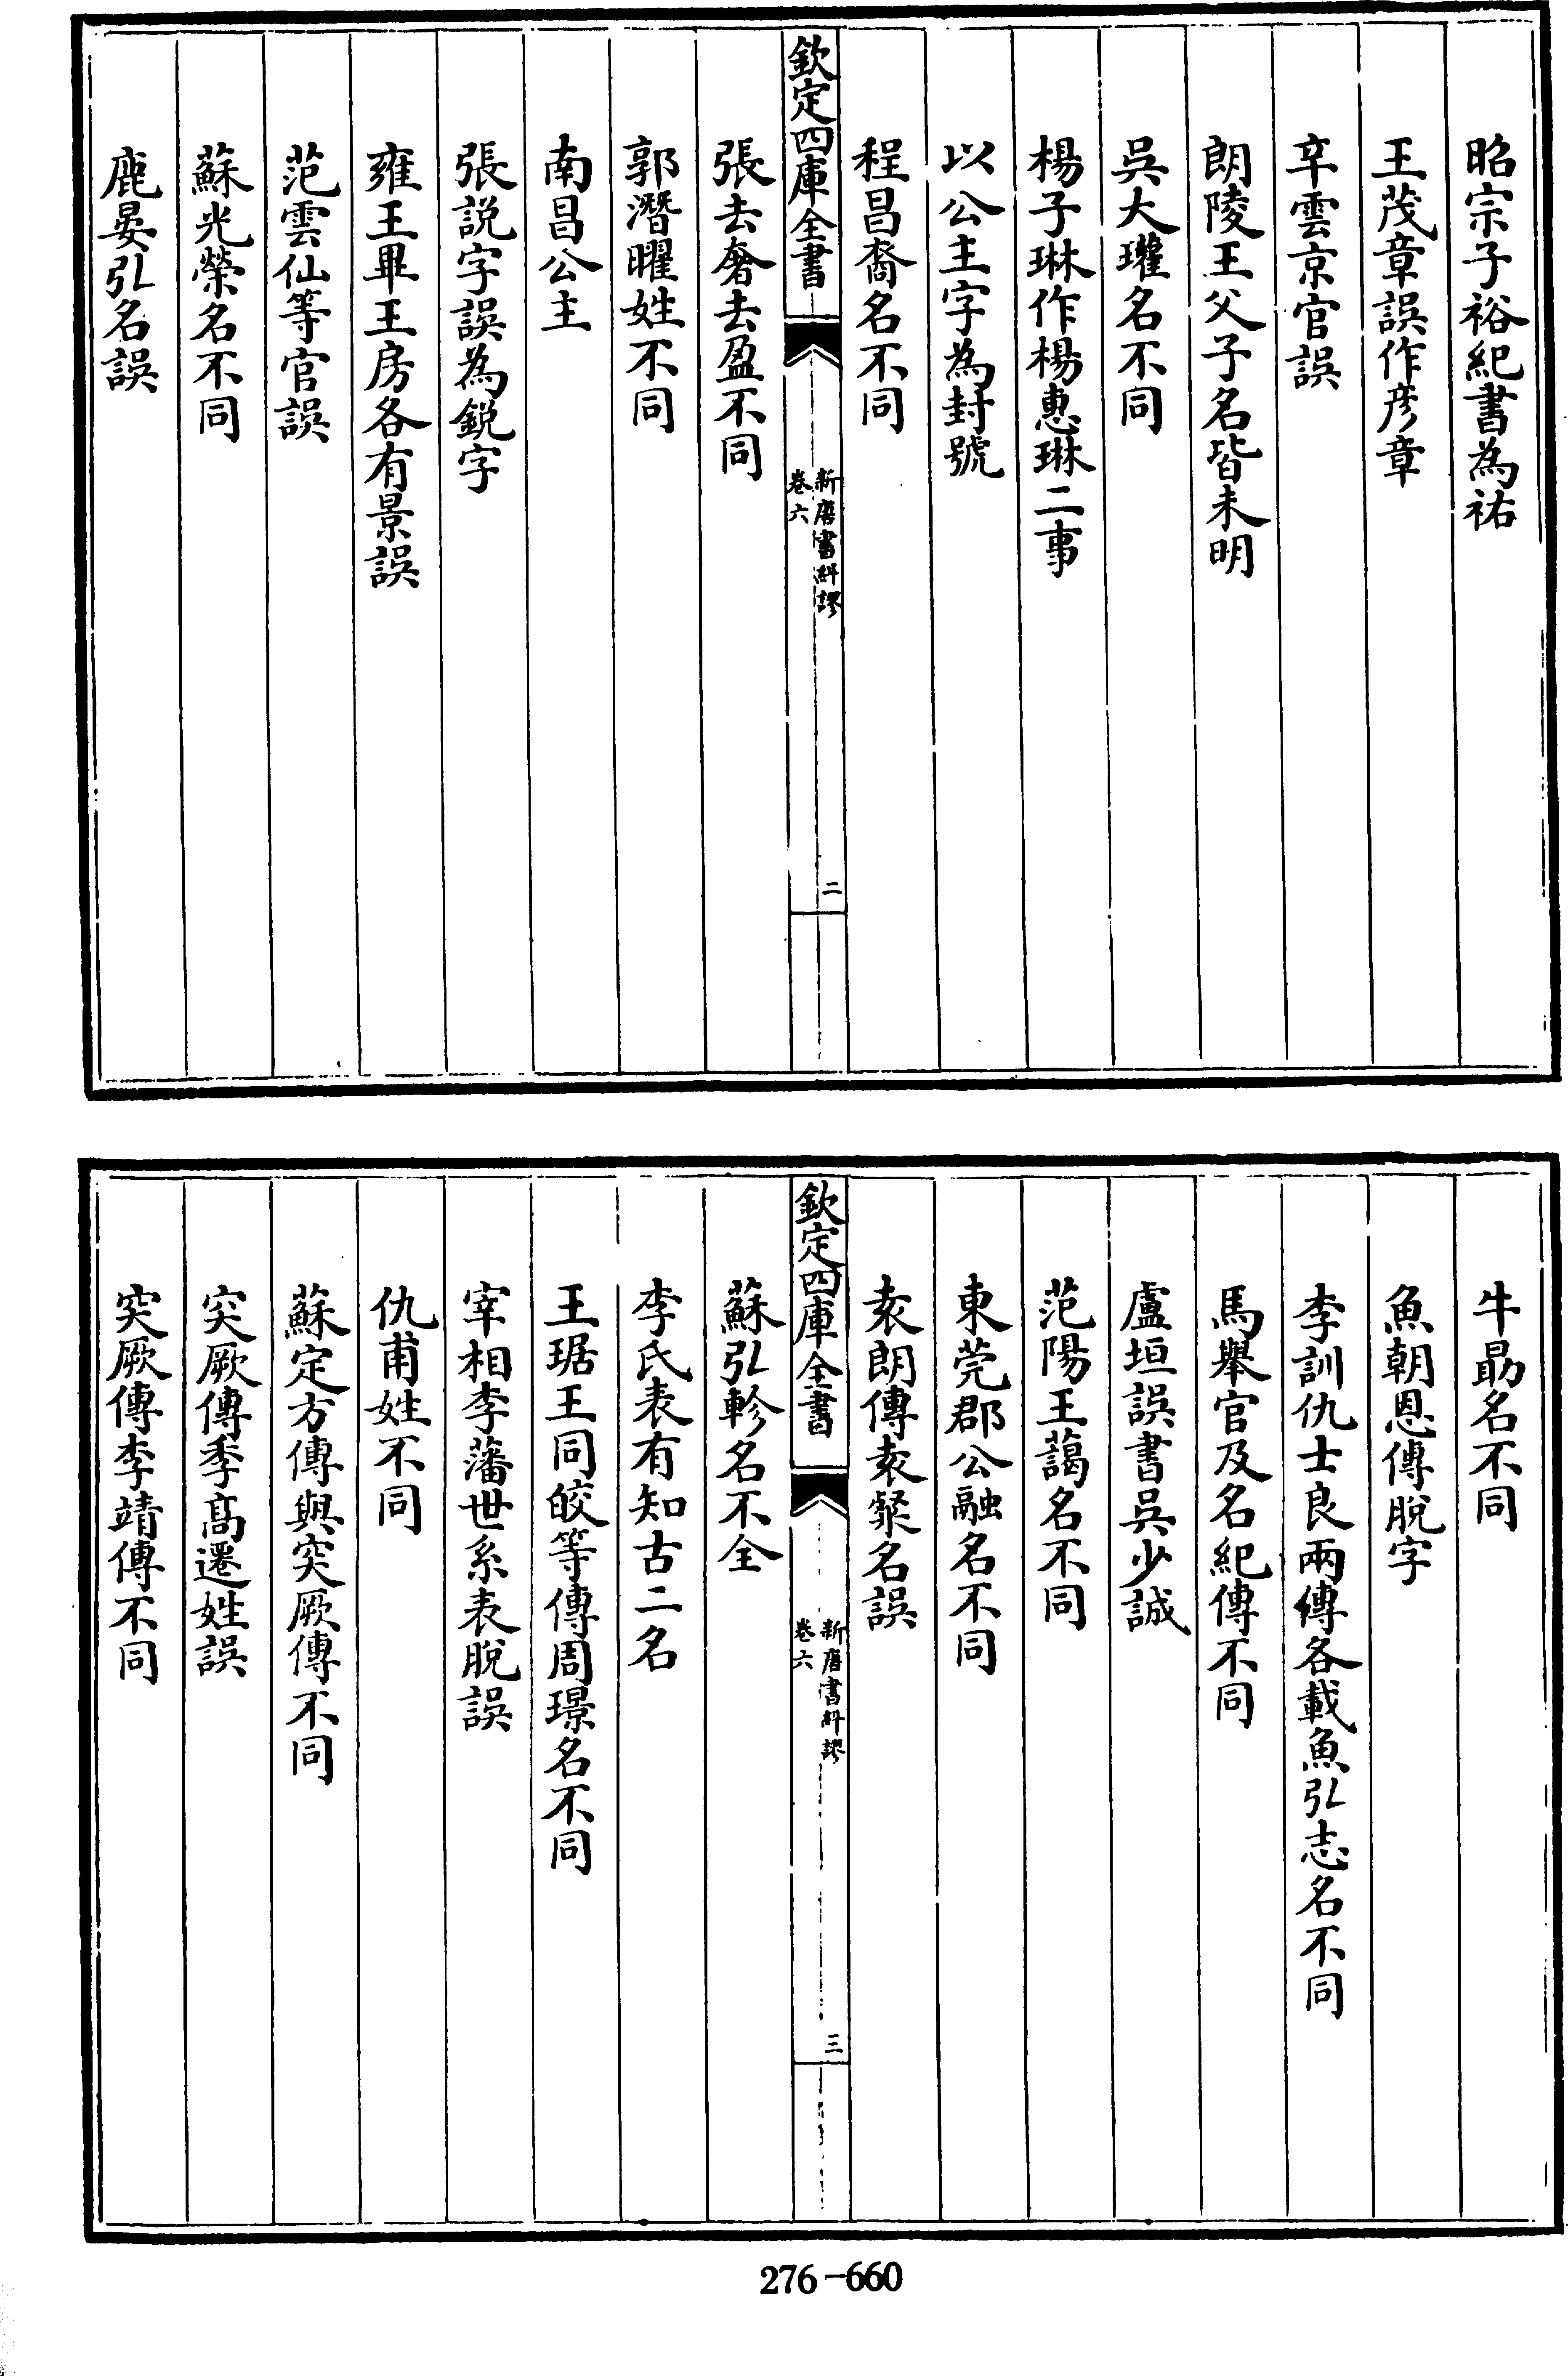 昭宗子裕紀書為祐
王茂章誤作彦章
辛雲京官誤
朗陵王父子名皆未明
吳大瓘名不同
楊子琳作楊惠琳二事
以公主字為封號
程昌裔名不同
欽定四庫全書
新唐書糾謬
卷六
二
張去奢去盈不同
郭潛曜姓不同
南昌公主
張説字誤為鋭字
雍王畢王房各有景誤
范雲仙等官誤
蘇光榮名不同
鹿晏弘名誤
牛勗名不同
魚朝恩傳脫字
李訓仇士良兩傳各載魚弘志名不同
馬舉官及名紀傳不同
盧坦誤書吳少誠
范陽王藹名不同
東莞郡公融名不同
袁朗傳袁粲名誤
欽定四庫全書
新唐書糾謬
卷六
三
蘇弘軫名不全
李氏表有知古二名
王琚王同皎等傳周璟名不同
宰相李藩世系表脫誤
仇甫姓不同
蘇定方傳與突厥傳不同
突厥傳季髙遷姓誤
突厥傳李靖傳不同
276-660